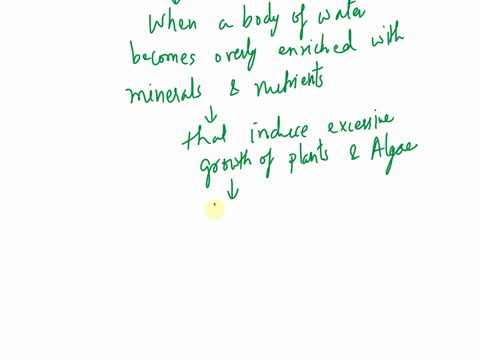 When a body of water
becomes overly enriched with
minerals & nutrients
that induce excessive
growth of plants & Algae